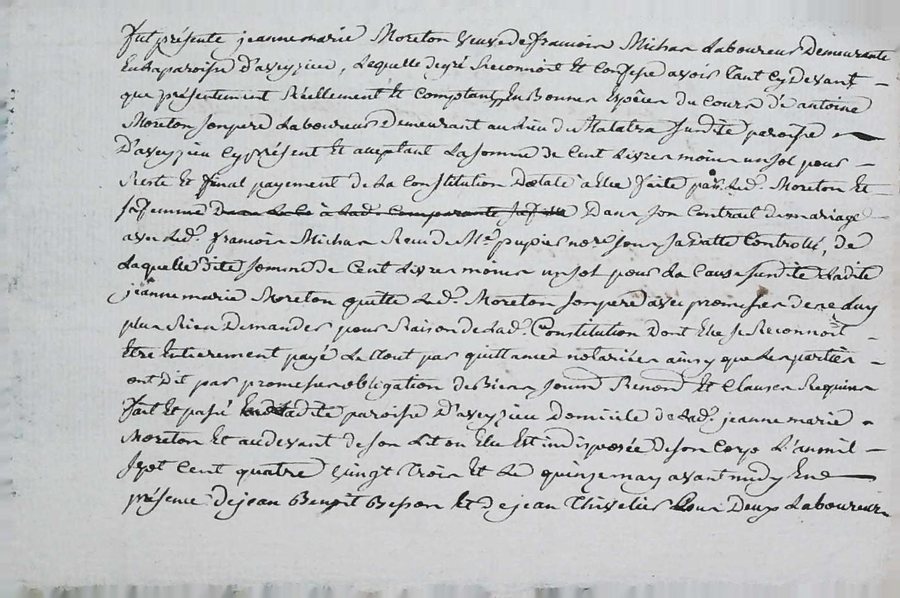 fut présente jeanne marie Moreton veuve de francois Michar Laboureur Demeurante
En la paroisse D'aveyzieu, Laquelle de gré Reconnoit Et Confesse avoir tant Cy Devant
que présentement Réellement Et Comptant En Bonnes Espêces du Cours d'antoine
Moreton son pere Laboureur Demeurant au Lieu du susdite paroisse
D'aveyzieu Cy présent Et acceptant La somme de Cent Livres moins un sol pour
Reste Et final payement de La Constitution Dotale a Elle faite par Led. Moreton Et
sa femme Dans Son Contrat de mariage
avec Led. francois Michar Reçu de Me. pupier nore. son sa datte Controllé, de
Laquelle dite somme de Cent Livres moins un sol pour La Cause susdite Ladite
jeanne marie Moreton quitte Led. Moreton son pere avec promesse de ne luy
plus Rien Demander pour Raison de Lad. Constitution Dont Elle se Reconnoit
Etre Entierement payé Le tout par quittances notariées ainsy que Les parties
ont Dit par promesse obligation de Biens soumd Renond Et Clauses Requises
fait Et passé Ladite paroisse D'aveyzieu Domicile de Lad. jeanne marie
Moreton Et au devant de son Lit ou Elle Est indisposée de son Corp L'an mil
sept Cent quatre vingt trois Et Le quinze may avant midy En
présence de jean Benoit Besson Et de jean Thivelier Tous Deux Laboureurs